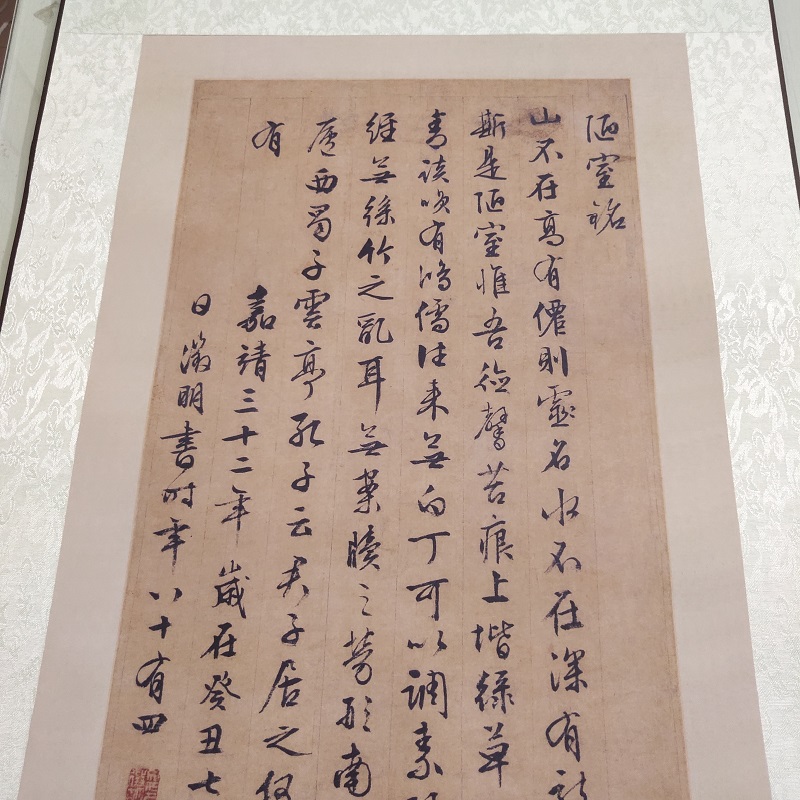 陋室銘
山不在高有僊則靈名水不在深有
斯是陋室惟吾德馨苔痕上堦綠草
青談咲有鴻儒往来無白丁可以調素
經無絲竹之亂耳無案牘之勞形南
廬西蜀子雲亭孔子云君子居之何
有 嘉靖三十二年歲在癸丑七
日徵明書時年八十有四